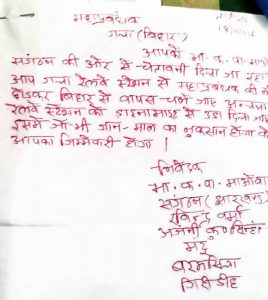 महाप्रबंधक
गया (बिहार)
आपको भा. क. पा. माओ
संगठन की ओर से चेतावनी दिया जा रहा
आप गया रेलवे स्टेशन से महाप्रबंधक की
छोड़कर बिहार से वापस चले जाए अन्यथा
रेलवे स्टेशन को डाइनामाइट से उड़ा दिया जाए
इसमें जो भी जान-माल का नुकसान होगा
आपका जिम्मेवारी होगा।
निवेदक
भा. क. पा. माओवा
संगठन (झारखण्ड)
रविन्द्र वर्मा
अजनी कु० सिन्हा
मद्
बरमसिया
गिरीडीह